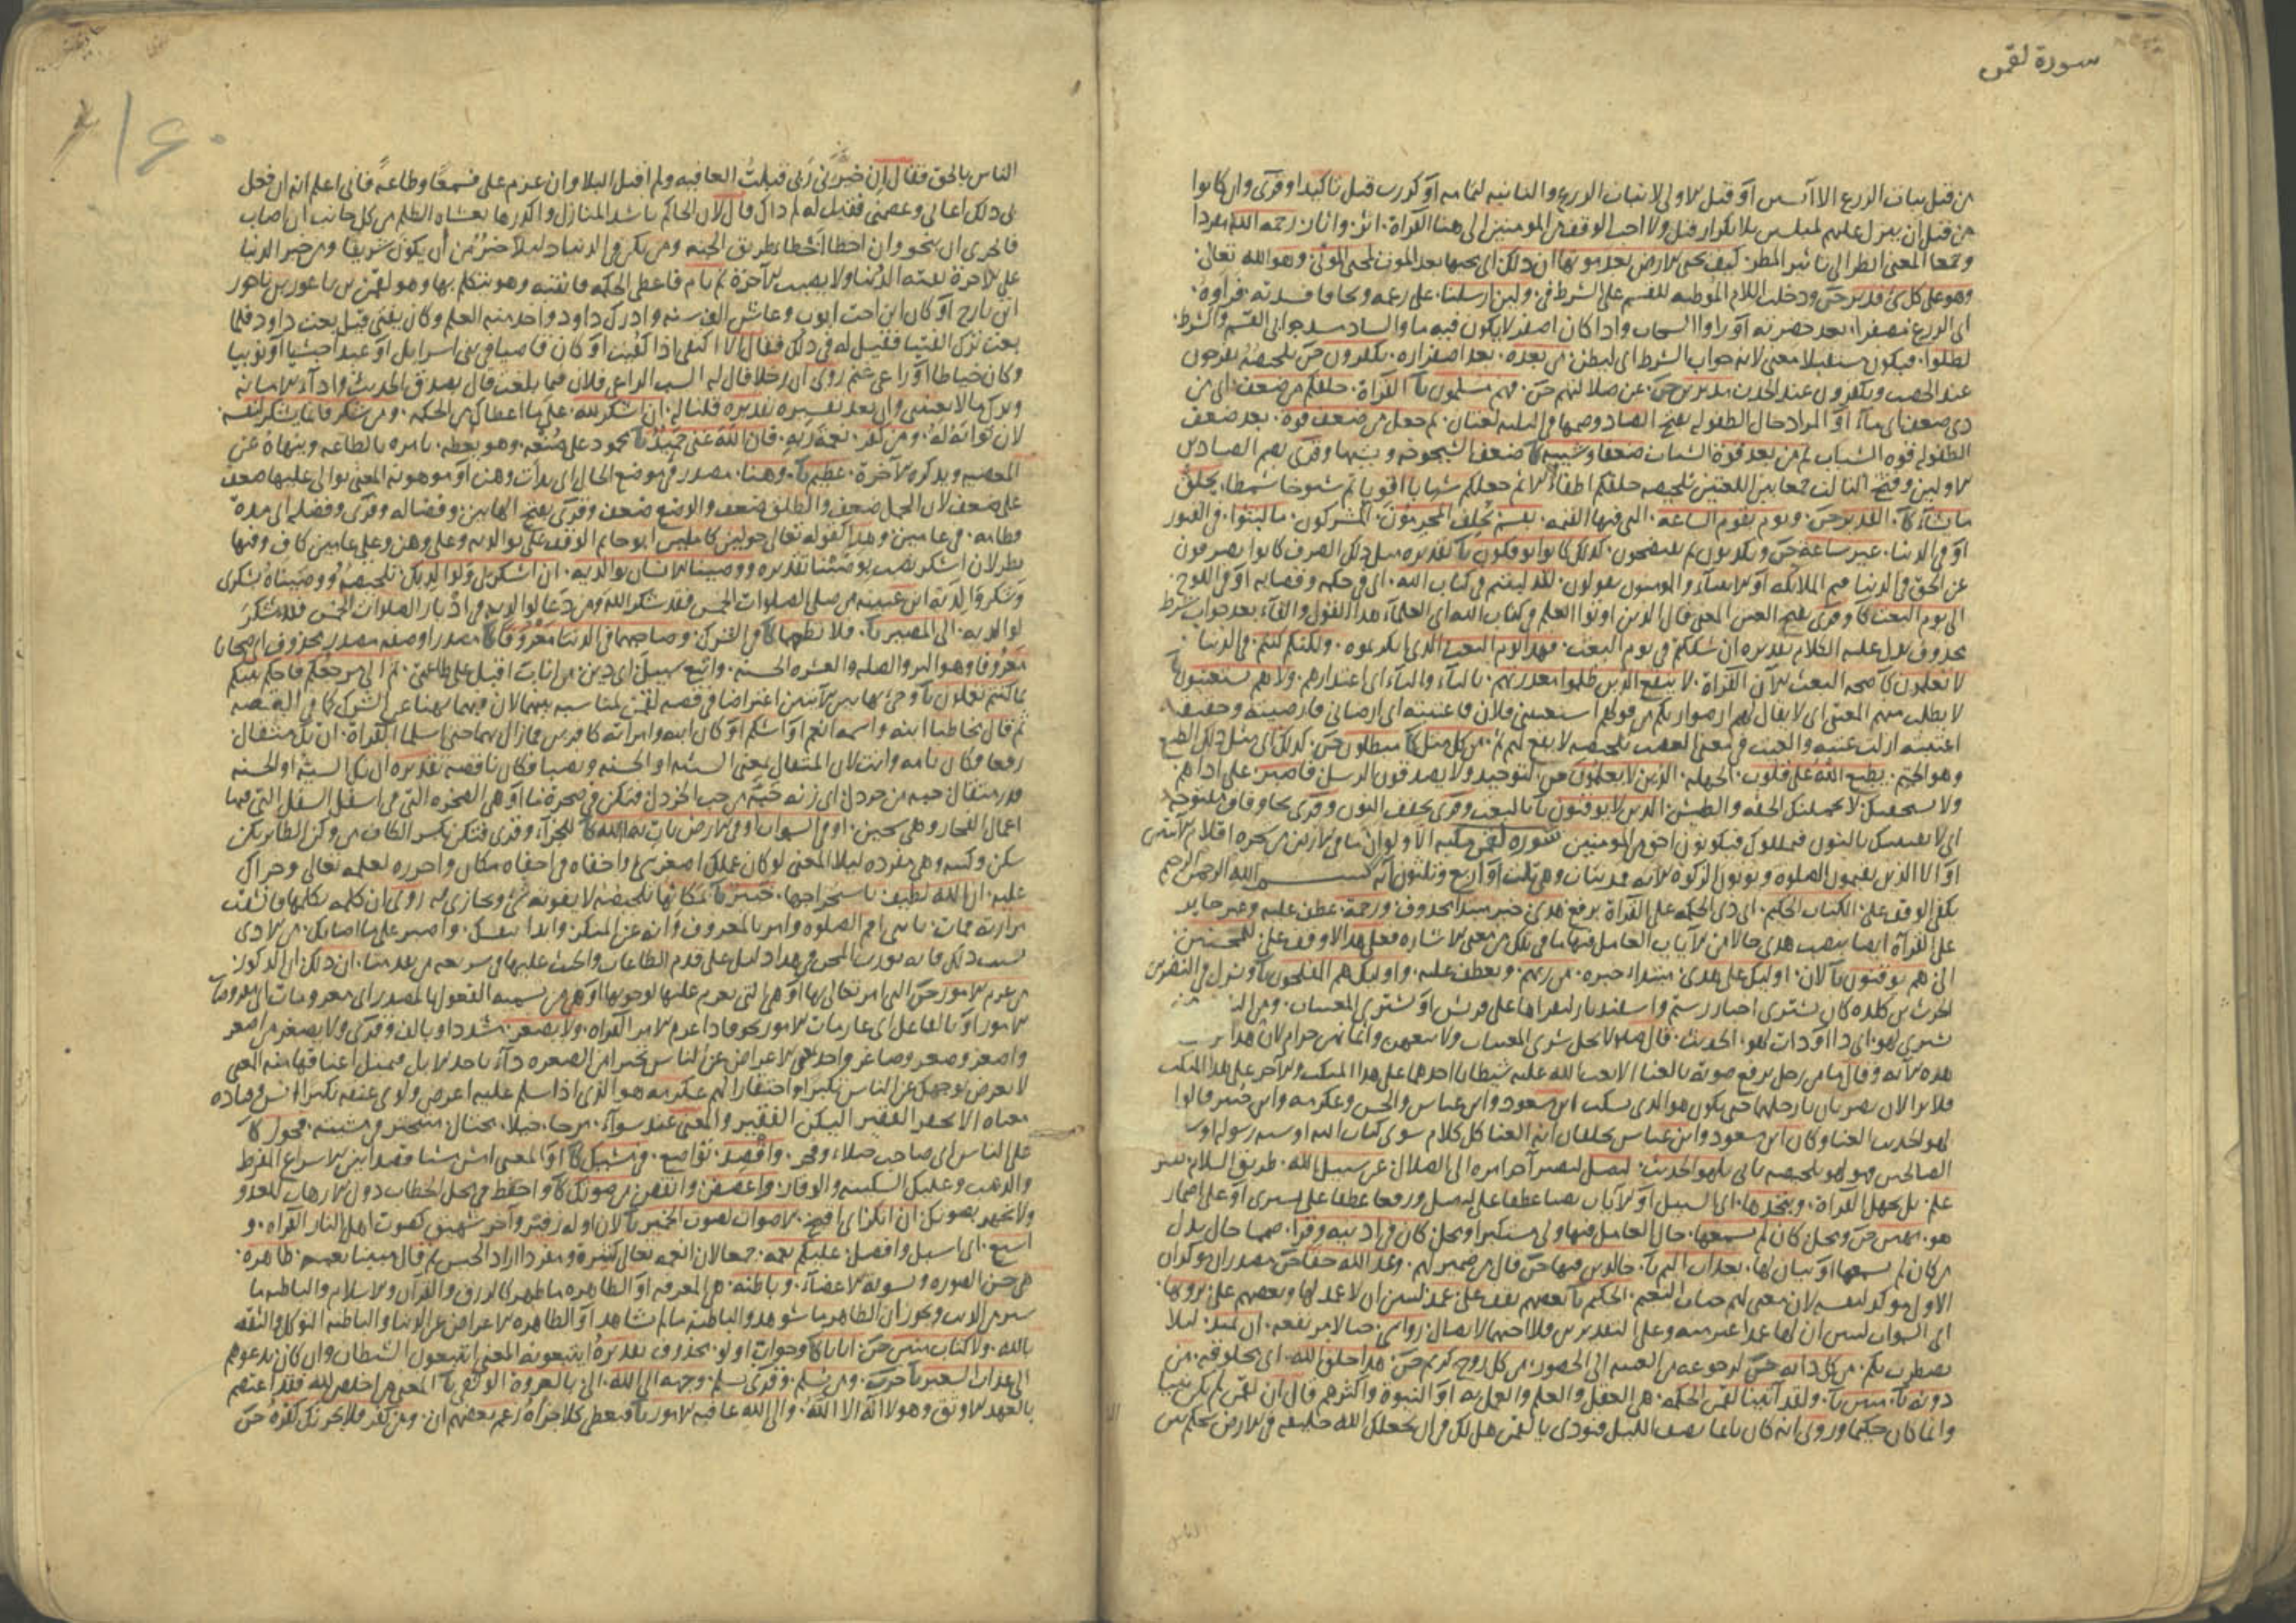 سورة لقمن
من قبل نبات الزرع الا آيسين او قبل الاولى لانبات الزرع والثانيه لتمامه او كررت قبل تاكيدا وقرى وان كانوا
من قبل ان ينزل عليهم لمبلسين بلا تكرار قبل ولا احب الوقف من المومنين الى هنا القراة اثر واثار رحمه الله مفردا
وجمعا المعنى انظر الى تاثير المطر كيف يحيي الارض بعد موتها ان ذلك اى يحيها بعد الموت لمحي الموتى وهو الله تعالى
وهو على كل شى قدير حسن ودخلت اللام الموطيه للقسم على الشرط في ولين ارسلنا على زرعهم ريحا فافسدته فراوه
اى الزرع مصفرا بعد خضرته او راوا السحاب واذا كان اصفر لا يكون فيه ماء والساد مسد جوابى القسم والشرط
لظلوا فيكون مستقبلا معنى لانه جواب الشرط اى ليظلن من بعده بعد اصفراره يكفرون حسن تلخيصه يفرحون
عند الخصب ويكفرون عند الجدب مدبرين حسن عن ضلالتهم حسن فهم مسلمون القراة خلقكم من ضعف اى من
ذى ضعف اى ماء او المراد حال الطفوليه بفتح الضاد وضمها في الثلثه لغتان ثم جعل من ضعف قوة بعد ضعف
الطفوليه قوه الشباب ثم من بعد قوة الشباب ضعفا وشيبه ضعف الشيخوخه وشيبها وقرى بضم الضادين
الاولين وفتح الثالث جمعا بين اللغتين تلخيصه خلقكم اطفالا ثم جعلكم شبابا اقويا ثم شيوخا شمطا يخلق
ما يشاء القدير حسن ويوم تقوم الساعه التى فيها القيمه يقسم يحلف المجرمون المشركون ما لبثوا في القبور
او في الدنيا غير ساعة حسن ويكذبون ثم يفتضحون كذلك كانوا يوفكون تقديره مثل ذلك الصرف كانوا يصرفون
عن الحق في الدنيا هم الملائكه او الانبياء والمومنون يقولون لقد لبثتم في كتاب الله اى في حكمه وقضايه او في اللوح
الى يوم البعث وقرى بفتح العين المعنى قال الذين اوتوا العلم في كتاب الله اى العلماء هذا القول والفاء بعد جواب شرط
محذوف يدل عليه الكلام تقديره ان شككتم في يوم البعث فهذا يوم البعث الذى انكرتموه ولكنكم كنتم في الدنيا
لا تعلمون صحه البعث الآن القراة لا ينفع الذين ظلموا معذرتهم بالتاء والياء اى اعتذارهم ولا هم يستعتبون
لا يطلب منهم العتبى اى لا يقال لهم ارضوا ربكم من قولك استعتبنى فلان فاعتبته اى ارضانى فارضيته وحقيقه
اعتبته ازلت عتبه والعتب في معنى الغضب تلخيصه لا ينفع لهم من كل مثل مبطلون حسن كذلك اى مثل ذلك الطبع
وهو الختم يطبع الله على قلوب الجهله الذين لا يعلمون حسن التوحيد ولا يصدقون الرسل فاصبر على اذاهم
ولا يستخفنك لا يحملنك الخفه والطيش الذين لا يوقنون بالبعث وقرى بخفف النون وقرى بحا وقاف من
اى لا يفتننك بالنون فيملكوك فيكونون احق من المومنين سورة لقمن مكيه الا ولو ان ما في الارض من شجره اقلام الآيتين
او الا الذين يقيمون الصلوة ويوتون الزكوة الآيه فمدنيات وهى ثلث او اربع وثلثون آيه بسم الله الرحمن الرحيم
يكفى الوقف على الكتاب الحكيم اى ذى الحكمه على القراة برفع هدى خبر مبتدا محذوف ورحمة عطف عليه وغير جايز
على القراة ايضا بنصب هدى حالا من الآيات العامل فيها ما في تلك من معنى الاشاره فعلى هذا الاوقف على للمحسنين
الى هم يوقنون الآن اوليك على هدى مبتداء خبره من ربهم ويعطف عليه واوليك هم المفلحون ونزل في النضر بن
الحرث بن كلده كان يشترى اخبار رستم واسفنديار ليقراها على قريش او يشترى المغنيات ومن الناس من
يشترى لهو اى ذا او ذات لهو الحديث قال صلم لا يحل شرى المغنيات ولا بيعهن واثمانهن حرام لان هذا
هذه الآيه وقال ما من رجل يرفع صوته بالغنا الا بعث الله عليه شيطانا احدهما على هذا المنكب والآخر على هذا المنكب
فلا يزالان يضربان بارجلهما حتى يكون هو الذى يسكت ابن مسعود وابن عباس والحسن وعكرمه وابن جبير قالوا
لهو الحديث الغنا وكان ابن مسعود وابن عباس يحلفان انه الغنا كل كلام سوى كتاب الله او سنه رسوله او سيره
الصالحين فهو لهو تلخيصه ياتى بلهو الحديث ليضل ليصير آخر امره الى الضلال عن سبيل الله طريق السلام بغير
علم بل بجهل القراة ويتخذها اى السبيل او الآيات نصبا عطفا على ليضل ورفعا عطفا على يشترى او على اضمار
هو مهين حسن ومحل كان لم يسمعها حال العامل فيها ولى مستكبرا ومحل كان في اذنيه وقرا صمما حال بدل
من كان لم يسمعها او بيان لها بعذاب اليم خالدين فيها حسن قال من ضمير لهم وعد الله حقا حسن مصدران موكدان
الاول موكد لنفسه لان معنى لهم جنات النعيم الحكيم بعضهم يقف على عمد لتبين ان لا عمد لها وبعضهم على ترونها
اى السموات لتبين ان لها عمدا غير مبنيه وعلى التقديرين فلا احبهما لاتصال رواسى جبالا مرتفعه ان تميد ليلا
تضطرب بكم من كل دابه حسن لرجوعه من الغيبه الى الحضور من كل زوج كريم حسن هذا خلق الله اى مخلوقه من
دونه مبين ولقد آتينا لقمن الحكمه هى العقل والعلم والعمل به او النبوة واكثرهم قال ان لقمن لم يكن نبيا
وانما كان حكيما وروى انه كان نايما نصف الليل فنودى يا لقمن هل لك في ان يجعلك الله خليفه في الارض تحكم بين
الناس
١٦٠
الناس بالحق فقال ان خيرنى ربى قبلت العافيه ولم اقبل البلا وان عزم على فسمعا وطاعة فانى اعلم انه ان فعل
بى ذلك اعاننى وعصمنى فقيل له لم ذاك قال لان الحاكم باشد المنازل واكدرها يغشاه الظلم من كل جانب ان اصاب
فالحرى ان ينجو وان اخطا اخطا طريق الجنه ومن يكن في الدنيا ذليلا خير من ان يكون شريفا ومن خير الدنيا
على الآخرة تفته الدنيا ولا يصيب الآخرة ثم نام فاعطى الحكمه فانتبه وهو يتكلم بها وهو لقمن بن باعور بن ناحور
ابن تارح او كان ابن اخت ايوب وعاش الف سنه وادرك داود واخذ منه العلم وكان يفتى قبل بعث داود فلما
بعث ترك الفتيا فقيل له في ذلك فقال الا اكتفى اذا كفيت او كان قاضيا في بنى اسرايل او عبدا حبشيا او نوبيا
وكان خياطا او راعى غنم روى ان رجلا قال له الست الراعى فلان فبما بلغت قال بصدق الحديث واداء الامانه
وترك ما لا يعنينى وان بعد تفسيره تقديره قلنا له ان اشكر لله على ما اعطاك من الحكمه ومن يشكر فانما يشكر لنفسه
لان ثوابه له ومن كفر نعمة ربه فان الله غنى حميد محمود على صنعه وهو يعظه يامره بالطاعه وينهاه عن
المعصيه ويذكره الآخرة عظيم وهنا مصدر في موضع الحال اى ذات وهن او موهونه المعنى توالى عليها ضعف
على ضعف لان الحمل ضعف والطلق ضعف والوضع ضعف وقرى بفتح الهاءين وفصاله وقرى وفصله الى مدة
فطامه في عامين وهذا كقوله تعالى حولين كاملين ابو حاتم الوقف على بوالديه وعلى وهن وعلى عامين كاف وفيها
نظر لان اشكر نصب بوصينا تقديره ووصينا الانسان بوالديه ان اشكر لى ولوالديك تلخيصه ووصيناه بشكرى
وشكر والديه ابن عيينه من صلى الصلوات الخمس فقد شكر الله ومن دعا لوالديه في ادبار الصلوات الخمس فقد شكر
لوالديه الى المصير فلا تطعهما في الشرك وصاحبهما في الدنيا معروفا مصدر او صفه مصدر محذوف اى صحابا
معروفا وهو البر والصله والعشره الحسنه واتبع سبيل اى دين من اناب اقبل على طاعتى ثم الى مرجعكم فاحكم بينكم
بما كنتم تعملون وجى بهاتين الآيتين اعتراضا في قصه لقمن لمناسبه بينهما لان فيهما نهيا عن الشرك كما في القصه
ثم قال مخاطبا ابنه واسمه انعم او اشكم او كان ابنه وامراته كافرين فما زال بهما حتى اسلما القراة ان تك مثقال
رفعا وكان تامه وانث لان المثقال بمعنى السيئه او الحسنه ونصبا فكان ناقصه تقديره ان تك السيئه او الحسنه
قدر مثقال حبه من خردل اى زنه حبة من حب الخردل فتكن في صخرة هنا او هى الصخره التى في اسفل السفل التى فيها
اعمال الفجار وهى سجين او في السموات او في الارض يات بها الله للجزاء وقرى فتكن بكسر الكاف من وكن الطاير يكن
سكن وكنه وهى مفرده ليلا المعنى لو كان عملك اصغر شى واخفاه في اخفاه مكان واحرزه لعلمه تعالى وجزاك
عليه ان الله لطيف باستخراجها خبير بمكانها تلخيصه لا يفوته شى ويجازى به روى ان كلمه تكلمها فانشقت
مرارته فمات يا بنى اقم الصلوة وامر بالمعروف وانه عن المنكر وابدا بنفسك واصبر على ما اصابك من الاذى
بسبب ذلك فانه يورث المحن وفي هذا دليل على قدم الطاعات والحث عليها في شريعه من تقدمنا ان ذلك اى المذكور
من عزم الامور حسن التى امر تعالى بها او هى التى يعزم عليها لوجوبها او هى من تسميه المفعول بالمصدر اى معزومات اى مفروضات
الامور او بالفاعل اى عازمات الامور نحو فاذا عزم الامر القراه ولا تصعر مشددا وبالف وقرى ولا تصعر من اصعر
واصعر وصعر وصاعر واحد هى الاعراض عن الناس تكبرا من الصعره داء ياخذ الابل فيميل اعناقها منه المعنى
لا تعرض بوجهك عن الناس تكبرا واحتقارا لهم عكرمه هو الذى اذا سلم عليه اعرض ولوى عنقه تكبرا انس وقتاده
معناه الا تحقر الفقير ليكن الفقير والغنى عندك سواء مرحا خيلا مختال متبختر في مشيته فخور
على الناس اى صاحب خيلاء وفخر واقصد تواضع في مشيك او المعنى امش مشيا قصدا بين الاسراع المفرط
والدبيب وعليك السكينه والوقار واغضض وانقص من صوتك واحفظ في محل الخطاب دون الارهاب للعدو
ولا تجهر بصوتك ان انكر اى اقبح الاصوات لصوت الحمير لان اوله زفير وآخره شهيق كصوت اهل النار القراه و
اسبغ اى اسبل وافضل عليكم نعمه جمعا لان نعمه تعالى كثيرة ومفردا اراد الجنس ثم قال مبينا نعمه ظاهره
هى حسن الصوره وتسويه الاعضاء وباطنه هى المعرفه او الظاهره ما ظهر كالرزق والقرآن والاسلام والباطنه ما
ستر من الذنب ويجوز ان الظاهر ما شوهد والباطنه ما لم يشاهد او الظاهره الاعراض عن الدنيا والباطنه التوكل والثقه
بالله ولا كتاب منير حسن اباءنا وجواب اولو محذوف تقديره ايتبعونه المعنى ايتبعون الشيطان وان كان يدعوهم
الى عذاب السعير ومن يسلم وقرى يسلم وجهه الى الله الى بالعروة الوثقى المعنى من اخلص لله فقد اعتصم
بالعهد الاوثق وهو لا اله الا الله والى الله عاقبه الامور فيعطى كلا جزاه زعم بعضهم ان ومن كفر فلا يحزنك كفره حسن